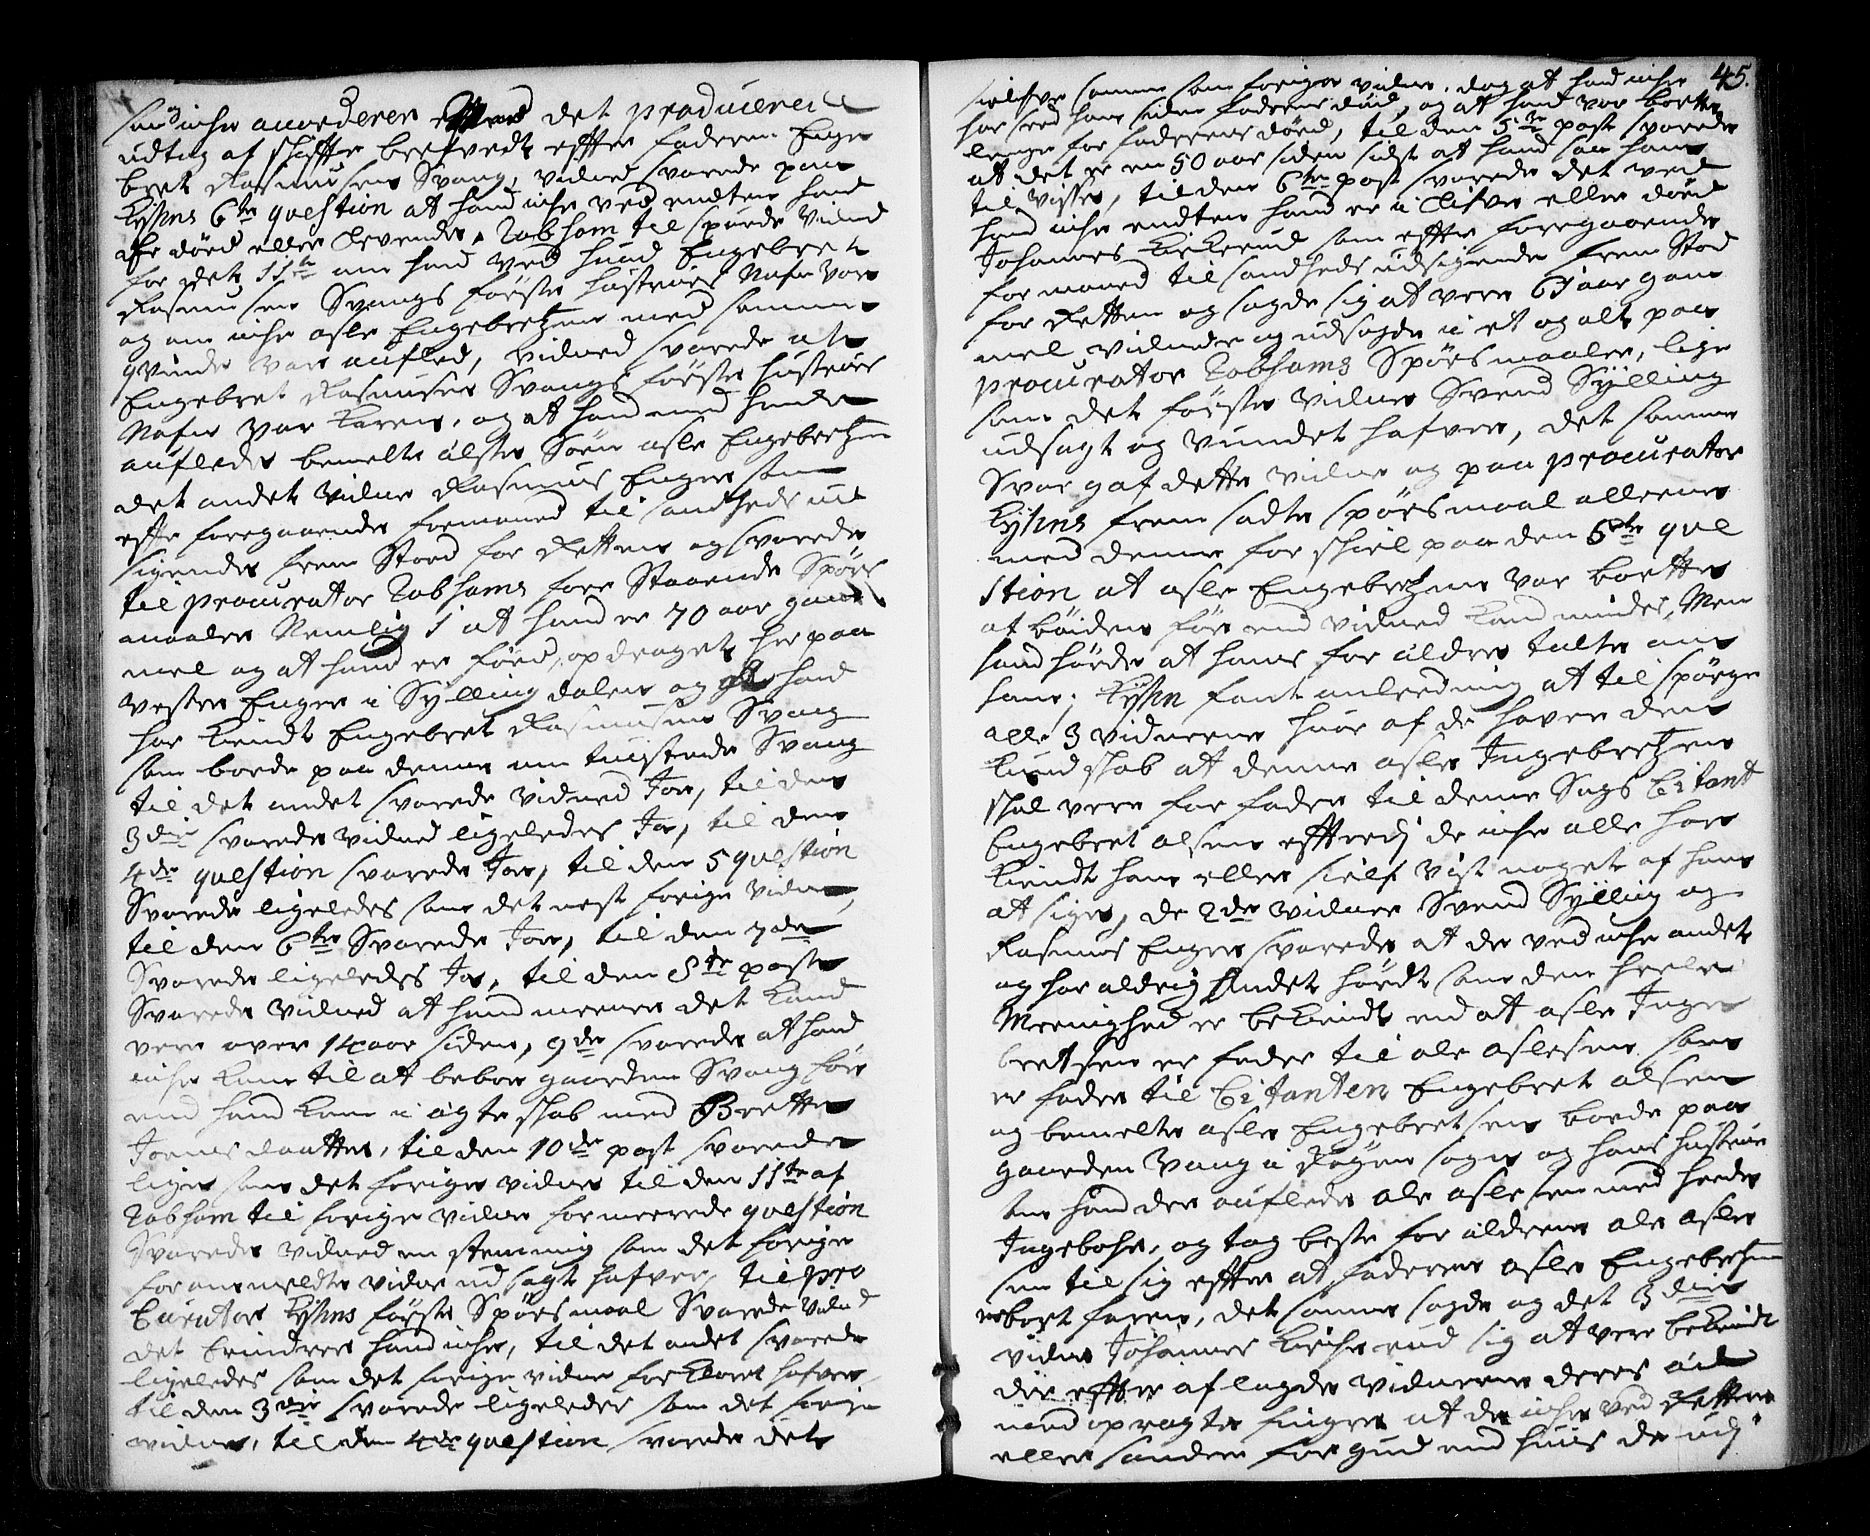 saa iche accorderer med det producerede
udtog af skiffte brefvedt effter faderen Enge
bret Rasmusen Svang, vidned svarede paa
Kyhns 6te question at hand iche ved endten hand
er død eller Levende, Robsam til spurde vidned
for det 11te om hand ved huad Engebret
Rasmusen Svangs første hustrues Nafn var
og om iche asle Engebretzen med samme
qvinde var aufled, vidned svarede at
Engebret Rasmusen Svangs første hustrues
Nafn var Karen, og at hand med hende
auflede bemelte elste Søn asle Engebretzen
det andet vidne Rasmus Enger som
effter foregaaende formaned til sandheds ud
sigende frem Stoed for Retten og svarede
til procurator Robsams forre Staaende Spørs
maaler Nemlig 1 at hand er 70 aar gam
mel og at hand er føed, opdraget her paa
vestre Enger i Sylling dalen og at hand
har kiendt Engebret Rasmusen Svang
som boede paa denne om tuistede Svang
til det andet svarede vidned Jae, til den
3die svarede vidned ligeledes Ja, til den
4de question svarede Jae, til den 5 question
Svarede ligeledes som det nest forige vidne,
til den 6te Svarede Jae, til den 7de
Svarede ligeledes Ja, til den 8te post
Svarede vidned at hand meener det kand
vere over 14 aar siden, 9de svarede at hand
iche kom til at beboe gaarden Svang før
end hand kom i ægte skab med Brette
Joensdaatter, til den 10de post svarede
liges som det forige vidne til den 11te af
Robsam til forige vidne formeerede question
Svarede vidned en stemmig som det forige
for anmeldte vidne udsagt hafver, til pro
Curator Kyhns første Spørsmaal Svarede vidned
det Erindrer hand iche, til det andet svarede
ligeledes som det forige vidne forklaret hafver,
til den 3die svarede ligeledes som det forige
vidne, til den 4de question svarede det
45.
sielfve samme som forige vidne, dog at hand iche
har seed ham siden faderens død, og at hand var borte
lenge for faderens død, til den 5te post svarede
at det er en 50 aar siden sidst at hand saa ham
til visse, til den 6te post svarede det ved
hand iche endten hand er i Lifve eller død
Johannes Kickerud som effter foregaaende
formaned til sandheds udsigende frem Stod
for Retten og sagde sig at vere 65 aar gam
mel, vidnede og udsagde i et og alt paa
procurator Robsams Spørsmaaler, lige
som det første vidne Svend Sylling
udsagt og vundet hafver, det samme
Svar gaf dette vidne og paa procurator
Kyhns frem sadte spørsmaal alleene
med denne for skiel paa den 5te que
stion at asle Engebretzen var borte
af bøiden før end vidned kand minde, Men
hand hørde at hans for eldre talte om
ham; Kyhn fant anleedning at til spørge
alle 3 vidnerne huor af de haver den
kundskab at denne asle Ingebretzen
skal vere far fader til denne Sags Citant
Engebret olsen effterdj de iche alle har
kiendt ham eller sielf vist noget af ham
at sige, de 2de vidner Svend Sylling og
Rasmus Enger svarede at de ved iche andet
og har aldrig Andet hørdt som den heele
Meenighed er bekiendt end at asle Inge
bretsen er fader til ole aslesen som
er fader til Citanten Engebret olsen
og bemelte asle Engebretsen boede paa
gaarden Vang i Røgen sogn og hans hustrue
som hand der auflede ole aslesen med heede
Ingebohr, og tog beste for eldrene ole asle
sen til sig effter at faderen asle Engebretzen
var bort faren, det samme sagde og det 3die
vidne Johannes Kickerud sig at vere bekiendt
die effter aflagde vidnerne deres æd
med opragte fingre at de iche ved Rettere
eller sandere for gud end huis de udj